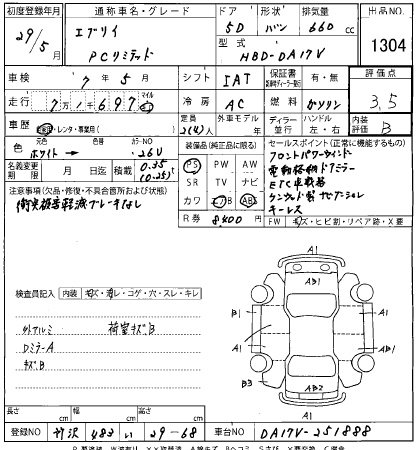 初度登録年月 通称車名・グレード ドア 形状 排気量 出品NO.
29/5月 エブリイ PCリミテッド 5D バン 660cc 1304
型式 HBD-DA17V
車検 7年5月 シフト IAT 保証書 有・無 評価点 3.5
走行 7万1千697 マイル km 冷房 AC 燃料 ガソリン
車歴 自家用・レンタ・事業用( ) 定員 2(4)人 外車モデル 年 ディーラー 並行 ハンドル 左・右 内装評価 B
色 ホワイト→ カラーNO 26U 装備品(純正品に限る) セールスポイント(正常に機能するもの)
名義変更期限 月 日迄 積載 0.35 (0.25)t PS PW AW フロントパワーウインドー
注意事項(欠品・修復・不具合箇所および状態) SR TV ナビ 電動格納ドアミラー
衝突被害軽減ブレーキなし カワ エアB ABS ETC車載器
R券 8,400円 ケンウッド製ナビゲーション
キーレス
FW キズ・ヒビ割・リペア跡・X要
検査員記入 内装 キズ・汚レ・コゲ・穴・スレ・キレ
A1
AB1
B1 A1
外アルミ 荷室キズB
A1 A1
Dミラー-A
キズB
B3
AB2
A1
長さ cm 幅 cm 高さ cm
登録NO 所沢 483 い 29-68 車台NO DA17V-251888